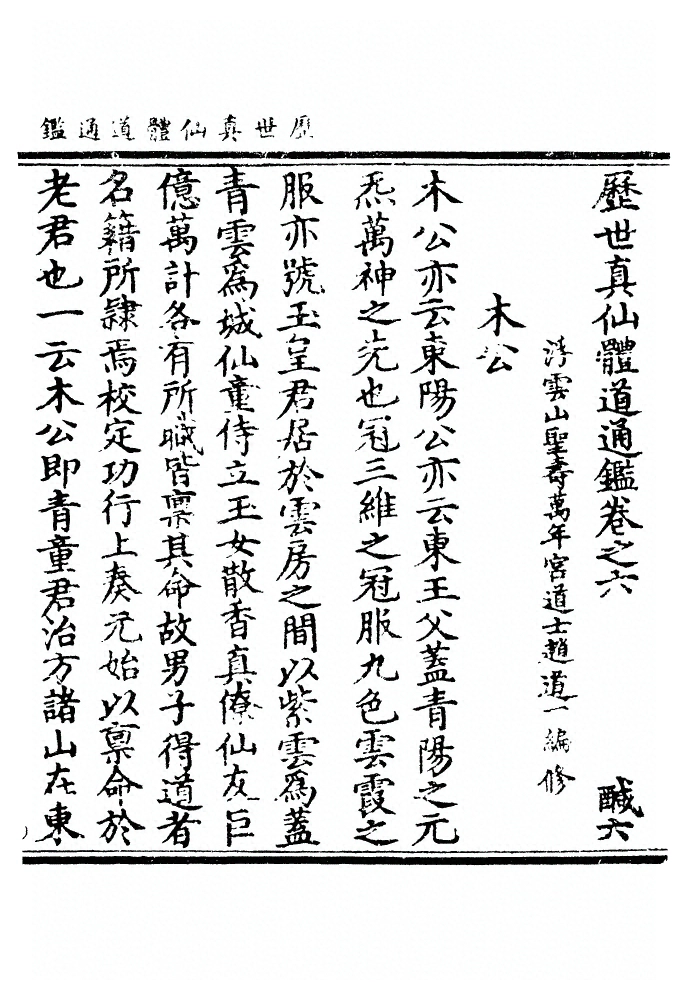 歷世真仙體道通鑑
歷世真仙體道通鑑卷之六 醎六
清雲山聖壽萬年宮道士趙道一編修
木公
木公亦云東陽公亦云東王父蓋青陽之元
炁萬神之先也冠三維之冠服九色雲霞之
服亦號玉皇君居於雲房之間以紫雲爲蓋
青雲爲城仙童侍立玉女散香真僚仙友巨
億萬計各有所職皆稟其命故男子得道者
名籍所隸焉校定功行上奏元始以稟命於
老君也一云木公即青童君治方諸山在東